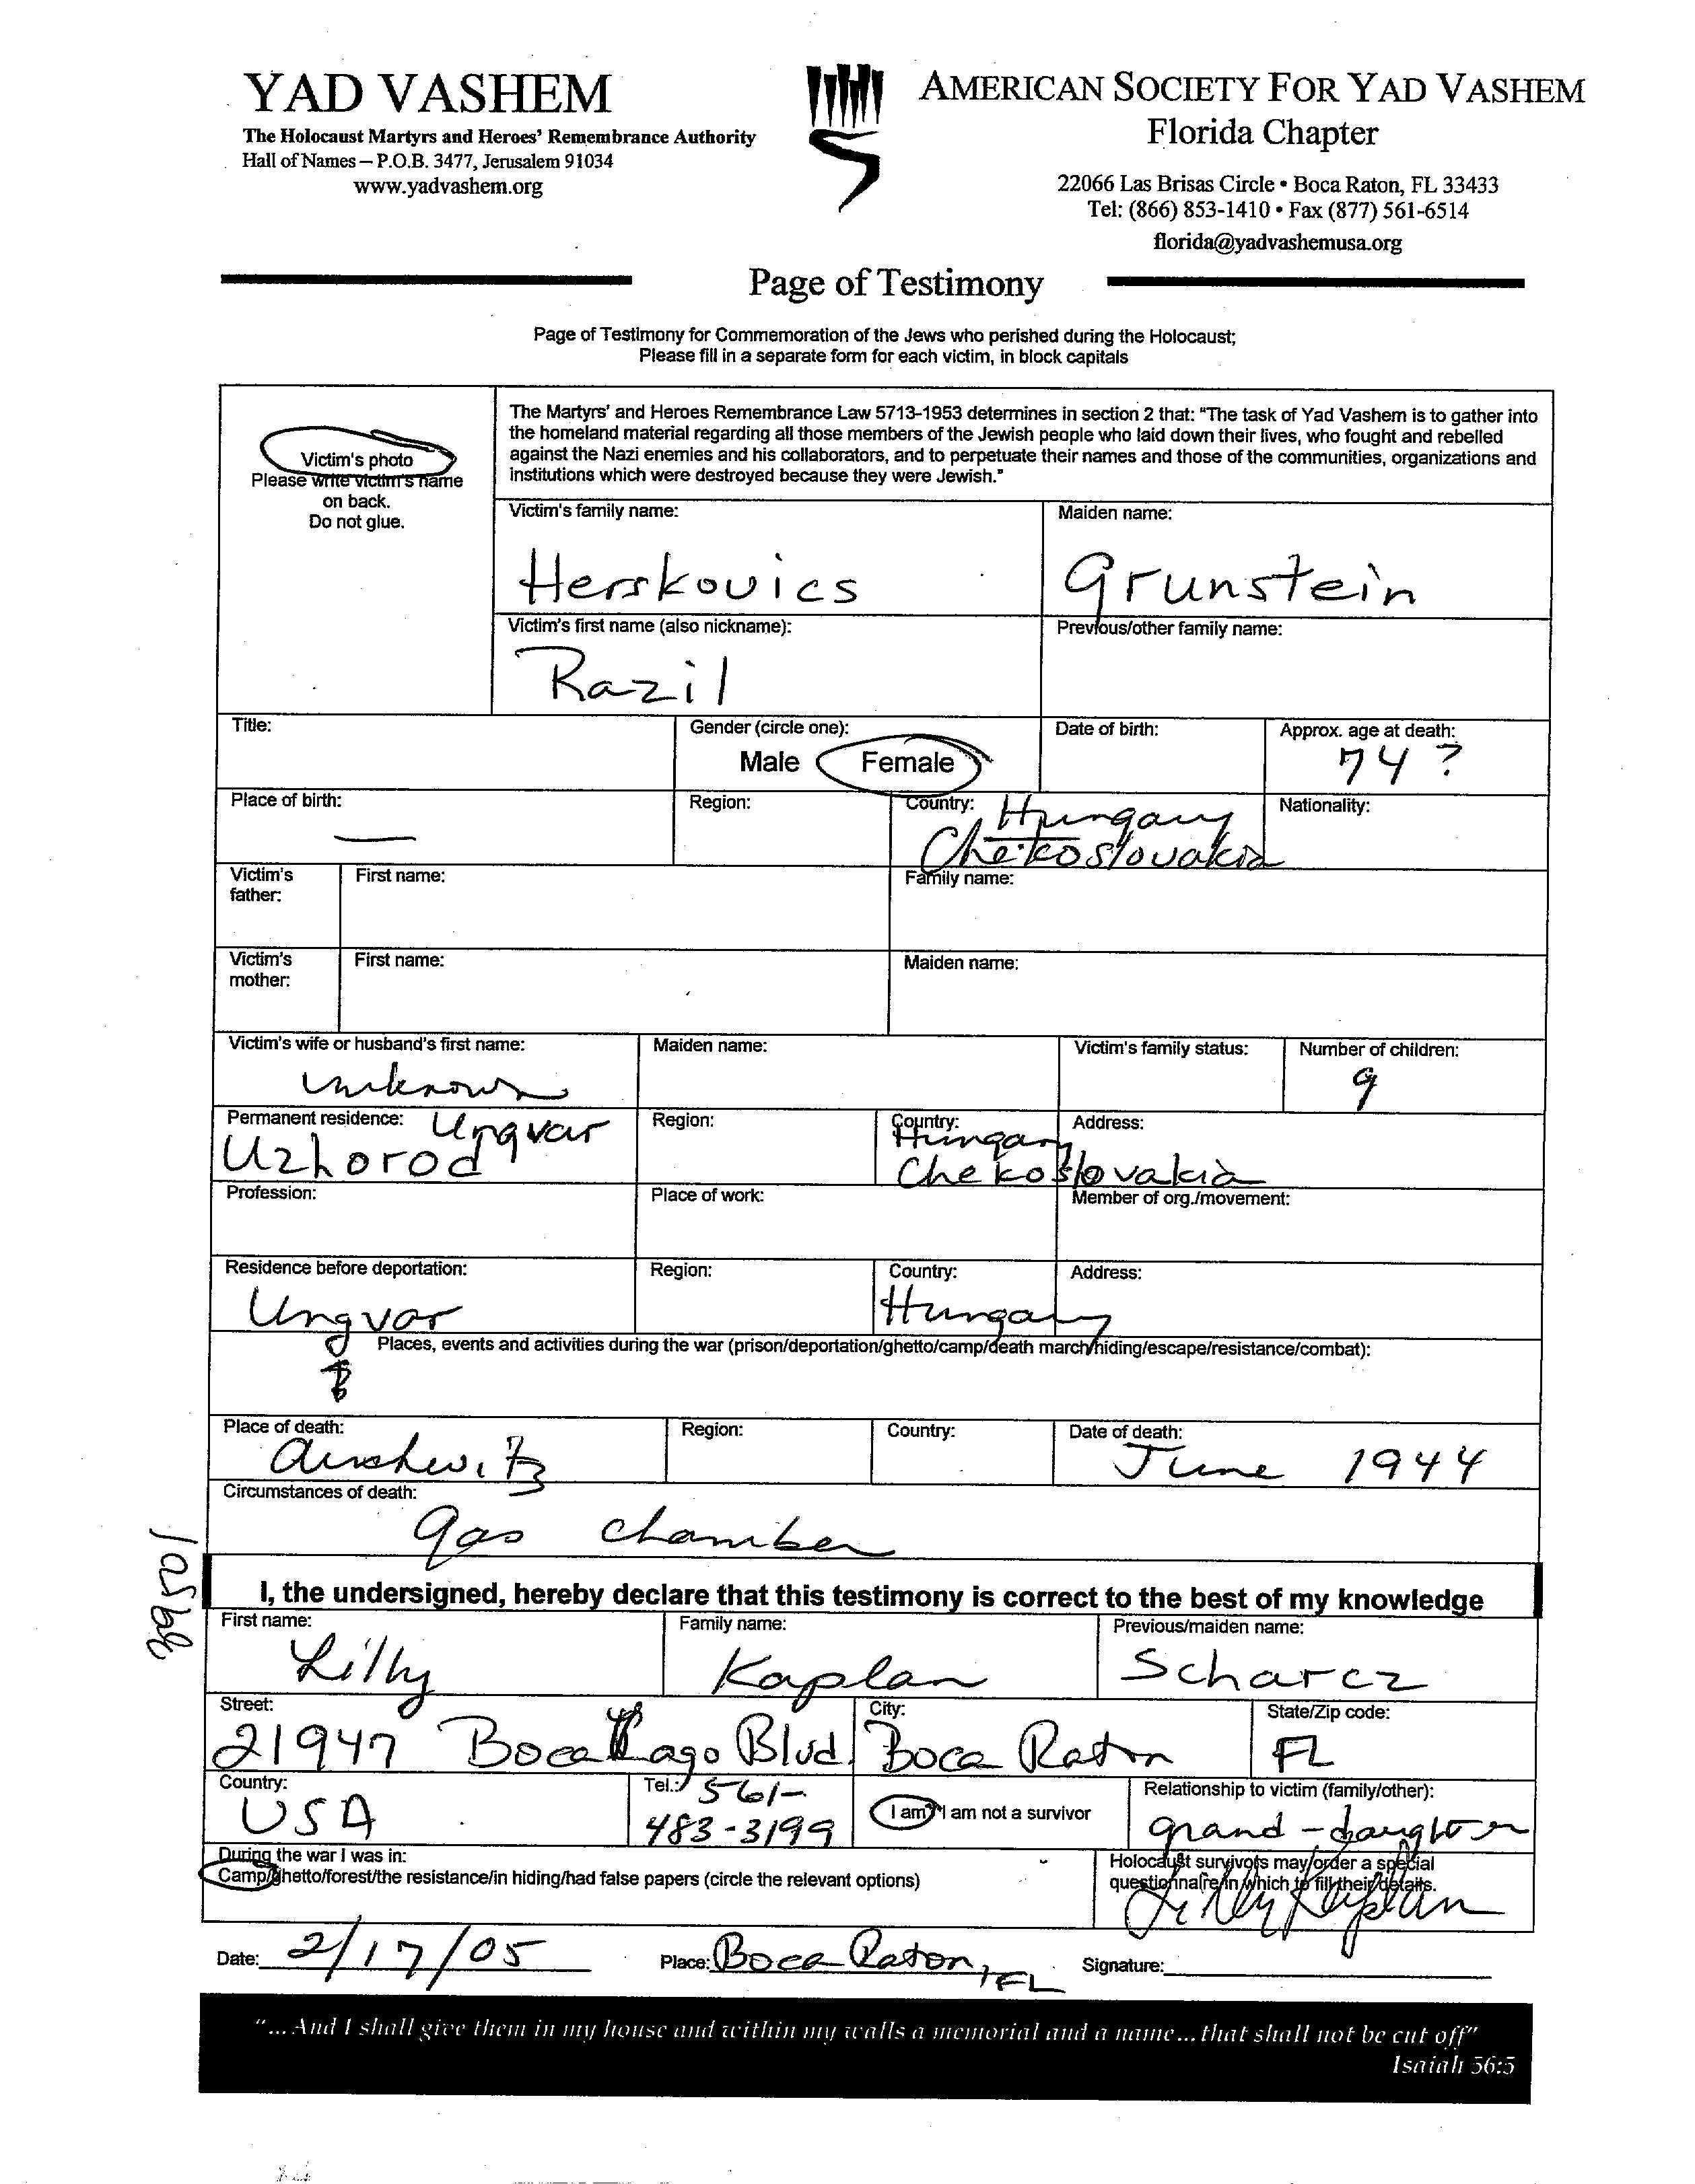 YAD VASHEM
The Holocaust Martyrs and Heroes' Remembrance Authority
Hall of Names – P.O.B. 3477, Jerusalem 91034
www.yadvashem.org
AMERICAN SOCIETY FOR YAD VASHEM
Florida Chapter
22066 Las Brisas Circle • Boca Raton, FL 33433
Tel: (866) 853-1410 • Fax (877) 561-6514
florida@yadvashemusa.org
Page of Testimony
Page of Testimony for Commemoration of the Jews who perished during the Holocaust;
Please fill in a separate form for each victim, in block capitals
Victim's photo
Please write victim's name
on back.
Do not glue.
The Martyrs' and Heroes Remembrance Law 5713-1953 determines in section 2 that: "The task of Yad Vashem is to gather into
the homeland material regarding all those members of the Jewish people who laid down their lives, who fought and rebelled
against the Nazi enemies and his collaborators, and to perpetuate their names and those of the communities, organizations and
institutions which were destroyed because they were Jewish."
Victim's family name: Maiden name:
Herskovics Grunstein
Victim's first name (also nickname): Previous/other family name:
Razil
Title: Gender (circle one): Date of birth: Approx. age at death:
Male Female 74 ?
Place of birth: Region: Country: Hungary Nationality:
— Chekoslovakia
Victim's father: First name: Family name:
Victim's mother: First name: Maiden name:
Victim's wife or husband's first name: Maiden name: Victim's family status: Number of children:
unknown 9
Permanent residence: Ungvar Region: Country: Hungary Address:
Uzhorod Chekoslovakia
Profession: Place of work: Member of org./movement:
Residence before deportation: Region: Country: Address:
Ungvar Hungary
Places, events and activities during the war (prison/deportation/ghetto/camp/death march/hiding/escape/resistance/combat):
Place of death: Region: Country: Date of death:
Auschwitz June 1944
Circumstances of death:
gas chamber
I, the undersigned, hereby declare that this testimony is correct to the best of my knowledge
First name: Family name: Previous/maiden name:
Lilly Kaplan Scharcz
Street: City: State/Zip code:
21947 Boca Lago Blvd. Boca Raton FL
Country: Tel.: 561- Relationship to victim (family/other):
USA 483-3199 I am/I am not a survivor grand-daughter
During the war I was in:
Camp/ghetto/forest/the resistance/in hiding/had false papers (circle the relevant options)
Holocaust survivors may order a special
questionnaire in which to fill their details.
Lilly Kaplan
Date: 2/17/05 Place: Boca Raton, FL Signature:
"... And I shall give them in my house and within my walls a memorial and a name... that shall not be cut off"
Isaiah 56:5